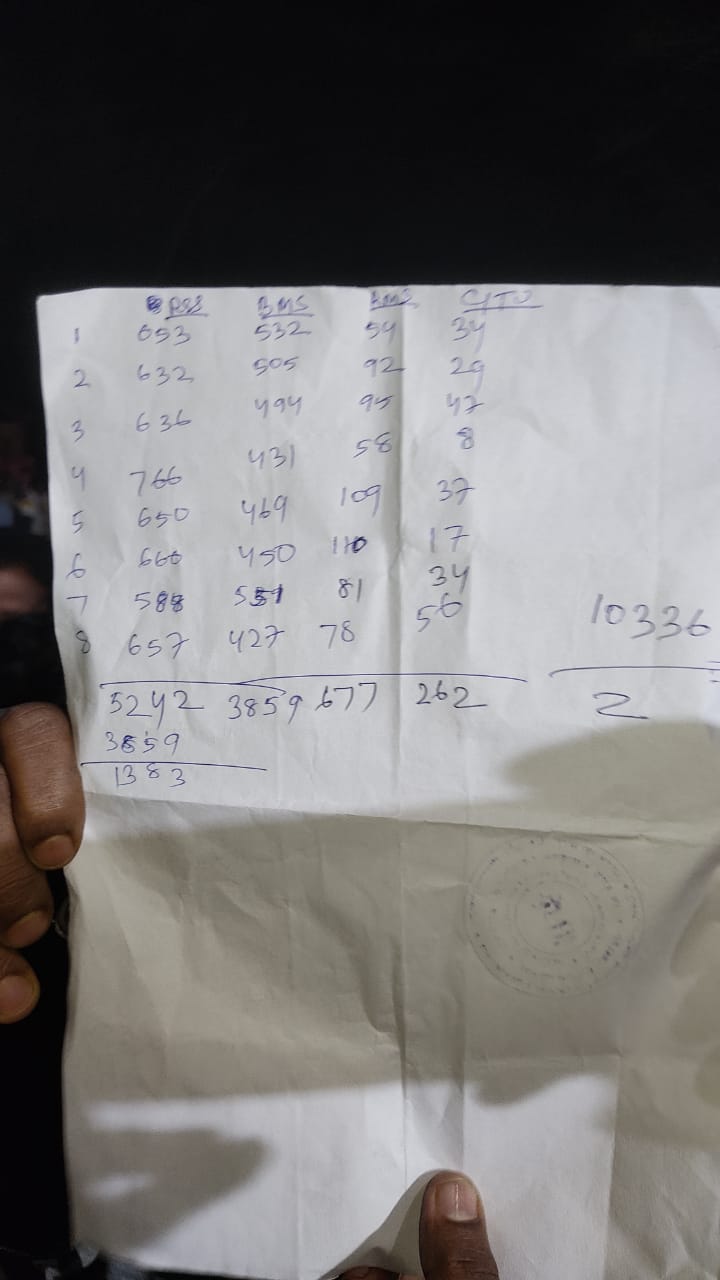 PSS BMS CITU
1 653 532 54 34
2 632 505 92 29
3 636 494 95 47
4 766 431 58 8
5 650 469 109 37
6 660 450 110 17
7 588 551 81 34
8 657 427 78 56
5242 3859 677 262
3859
1383
10336
2